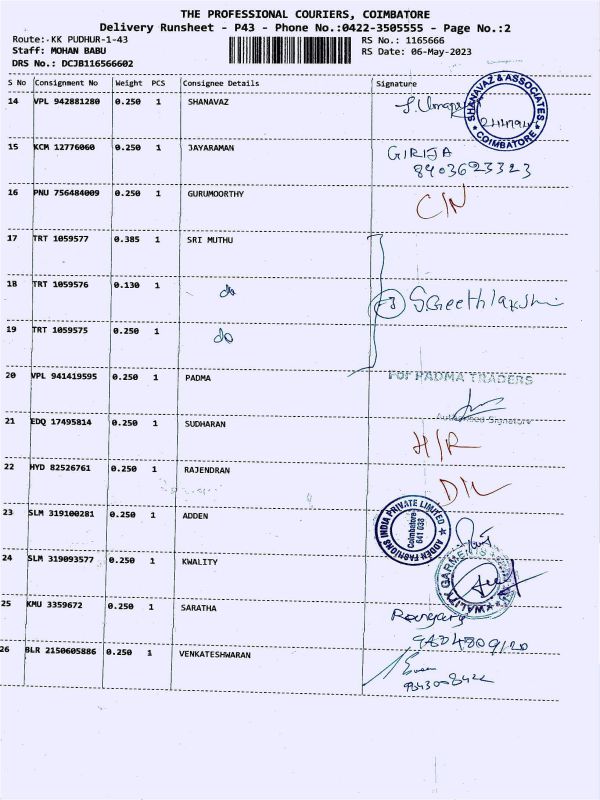 THE PROFESSIONAL COURIERS, COIMBATORE
Delivery Runsheet - P43 - Phone No.:0422-3505555 - Page No.:2
Route:-KK PUDHUR-1-43 RS No.: 1165666
Staff: MOHAN BABU RS Date: 06-May-2023
DRS No.: DCJB116566602
S No Consignment No Weight PCS Consignee Details Signature
14 VPL 942881280 0.250 1 SHANAVAZ
SHANAVAZ & ASSOCIATES
COIMBATORE
15 KCM 12776060 0.250 1 JAYARAMAN GIRIJA
8903623323
16 PNU 756484009 0.250 1 GURUMOORTHY C/N
17 TRT 1059577 0.385 1 SRI MUTHU
18 TRT 1059576 0.130 1 do
19 TRT 1059575 0.250 1 do
20 VPL 941419595 0.250 1 PADMA FOR PADMA TRADERS
Authorised Signatory
21 EDQ 17495814 0.250 1 SUDHARAN H/R
22 HYD 82526761 0.250 1 RAJENDRAN D/L
23 SLM 319100281 0.250 1 ADDEN
ADDEN FASHIONS INDIA PRIVATE LIMITED
Coimbatore
641 038
24 SLM 319093577 0.250 1 KWALITY
KWALITY GARMENTS
25 KMU 3359672 0.250 1 SARATHA
26 BLR 2150605886 0.250 1 VENKATESHWARAN